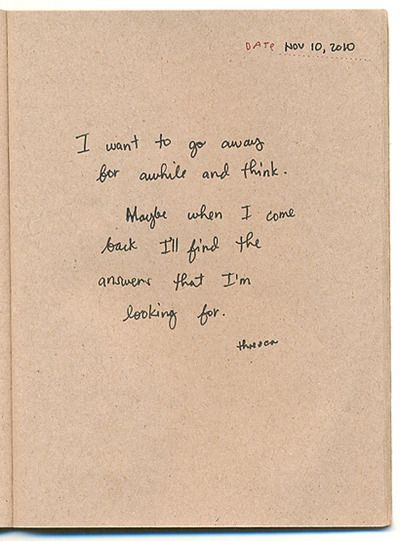 DATE NOV 10, 2010
I want to go away
for awhile and think.
Maybe when I come
back I'll find the
answers that I'm
looking for.